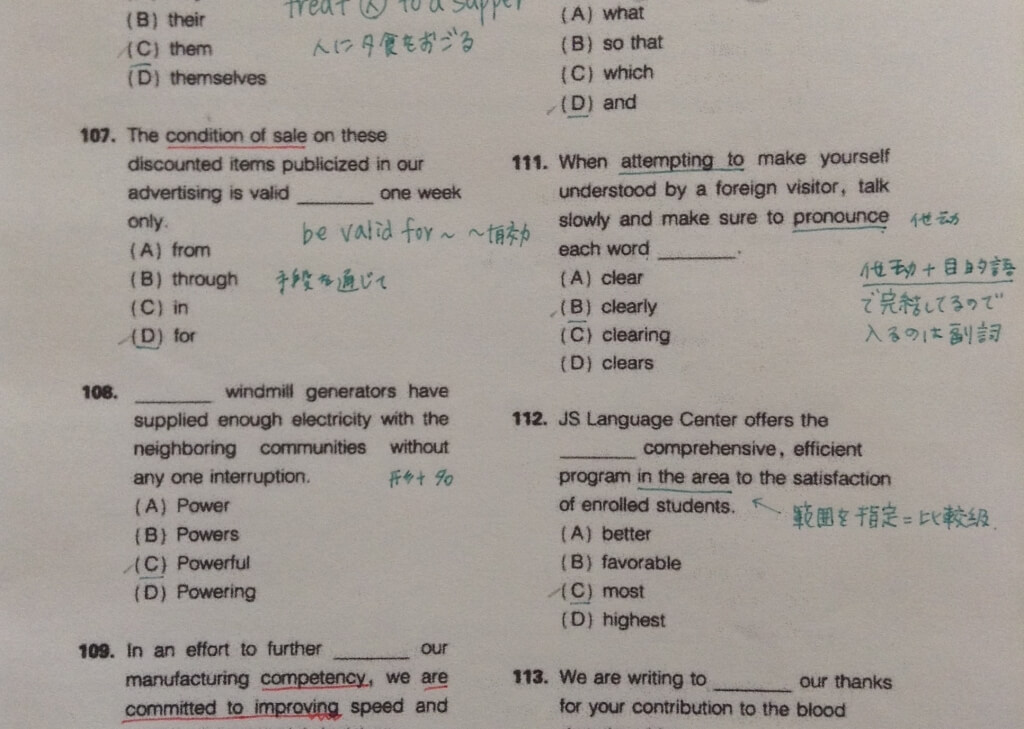 (B) their
treat Ⓐ to a supper
(C) them
人に夕食をおごる
(D) themselves
107. The condition of sale on these
discounted items publicized in our
advertising is valid ______ one week
only.
be valid for~ ~有効
(A) from
(B) through
手段を通じて
(C) in
(D) for
108. ______ windmill generators have
supplied enough electricity with the
neighboring communities without
any one interruption.
(A) Power
(B) Powers
(C) Powerful
(D) Powering
109. In an effort to further ______ our
manufacturing competency, we are
committed to improving speed and
(A) what
(B) so that
(C) which
(D) and
111. When attempting to make yourself
understood by a foreign visitor, talk
slowly and make sure to pronounce
他動
each word ______.
(A) clear
他動+目的語
(B) clearly
で完結してるので
(C) clearing
入るのは副詞
(D) clears
112. JS Language Center offers the
______ comprehensive, efficient
program in the area to the satisfaction
of enrolled students.
範囲を指定=比較級
(A) better
(B) favorable
(C) most
(D) highest
113. We are writing to ______ our thanks
for your contribution to the blood